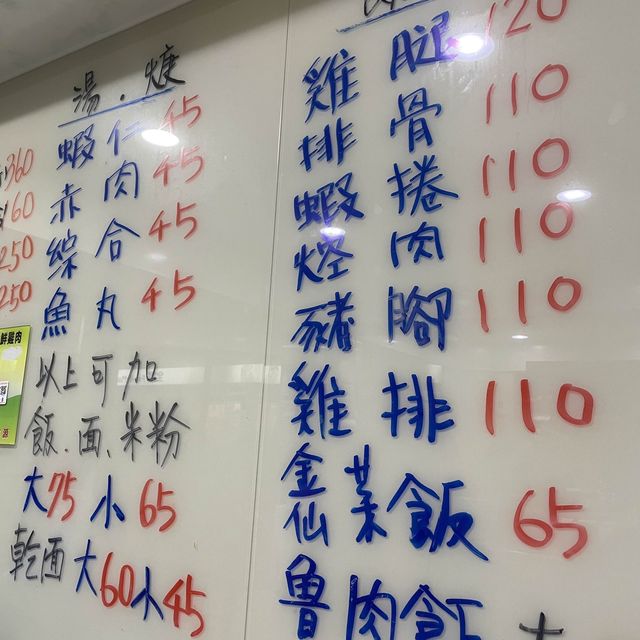 360
160
250
250
鮮雞肉
湯.焿
蝦仁 45
赤肉 45
綜合 45
魚丸 45
以上可加
飯、面、米粉
大75 小65
乾面大60小45
雞腿 120
排骨 110
蝦捲 110
焢肉 110
豬腳 110
雞排 110
金仙菜飯 65
魯肉飯